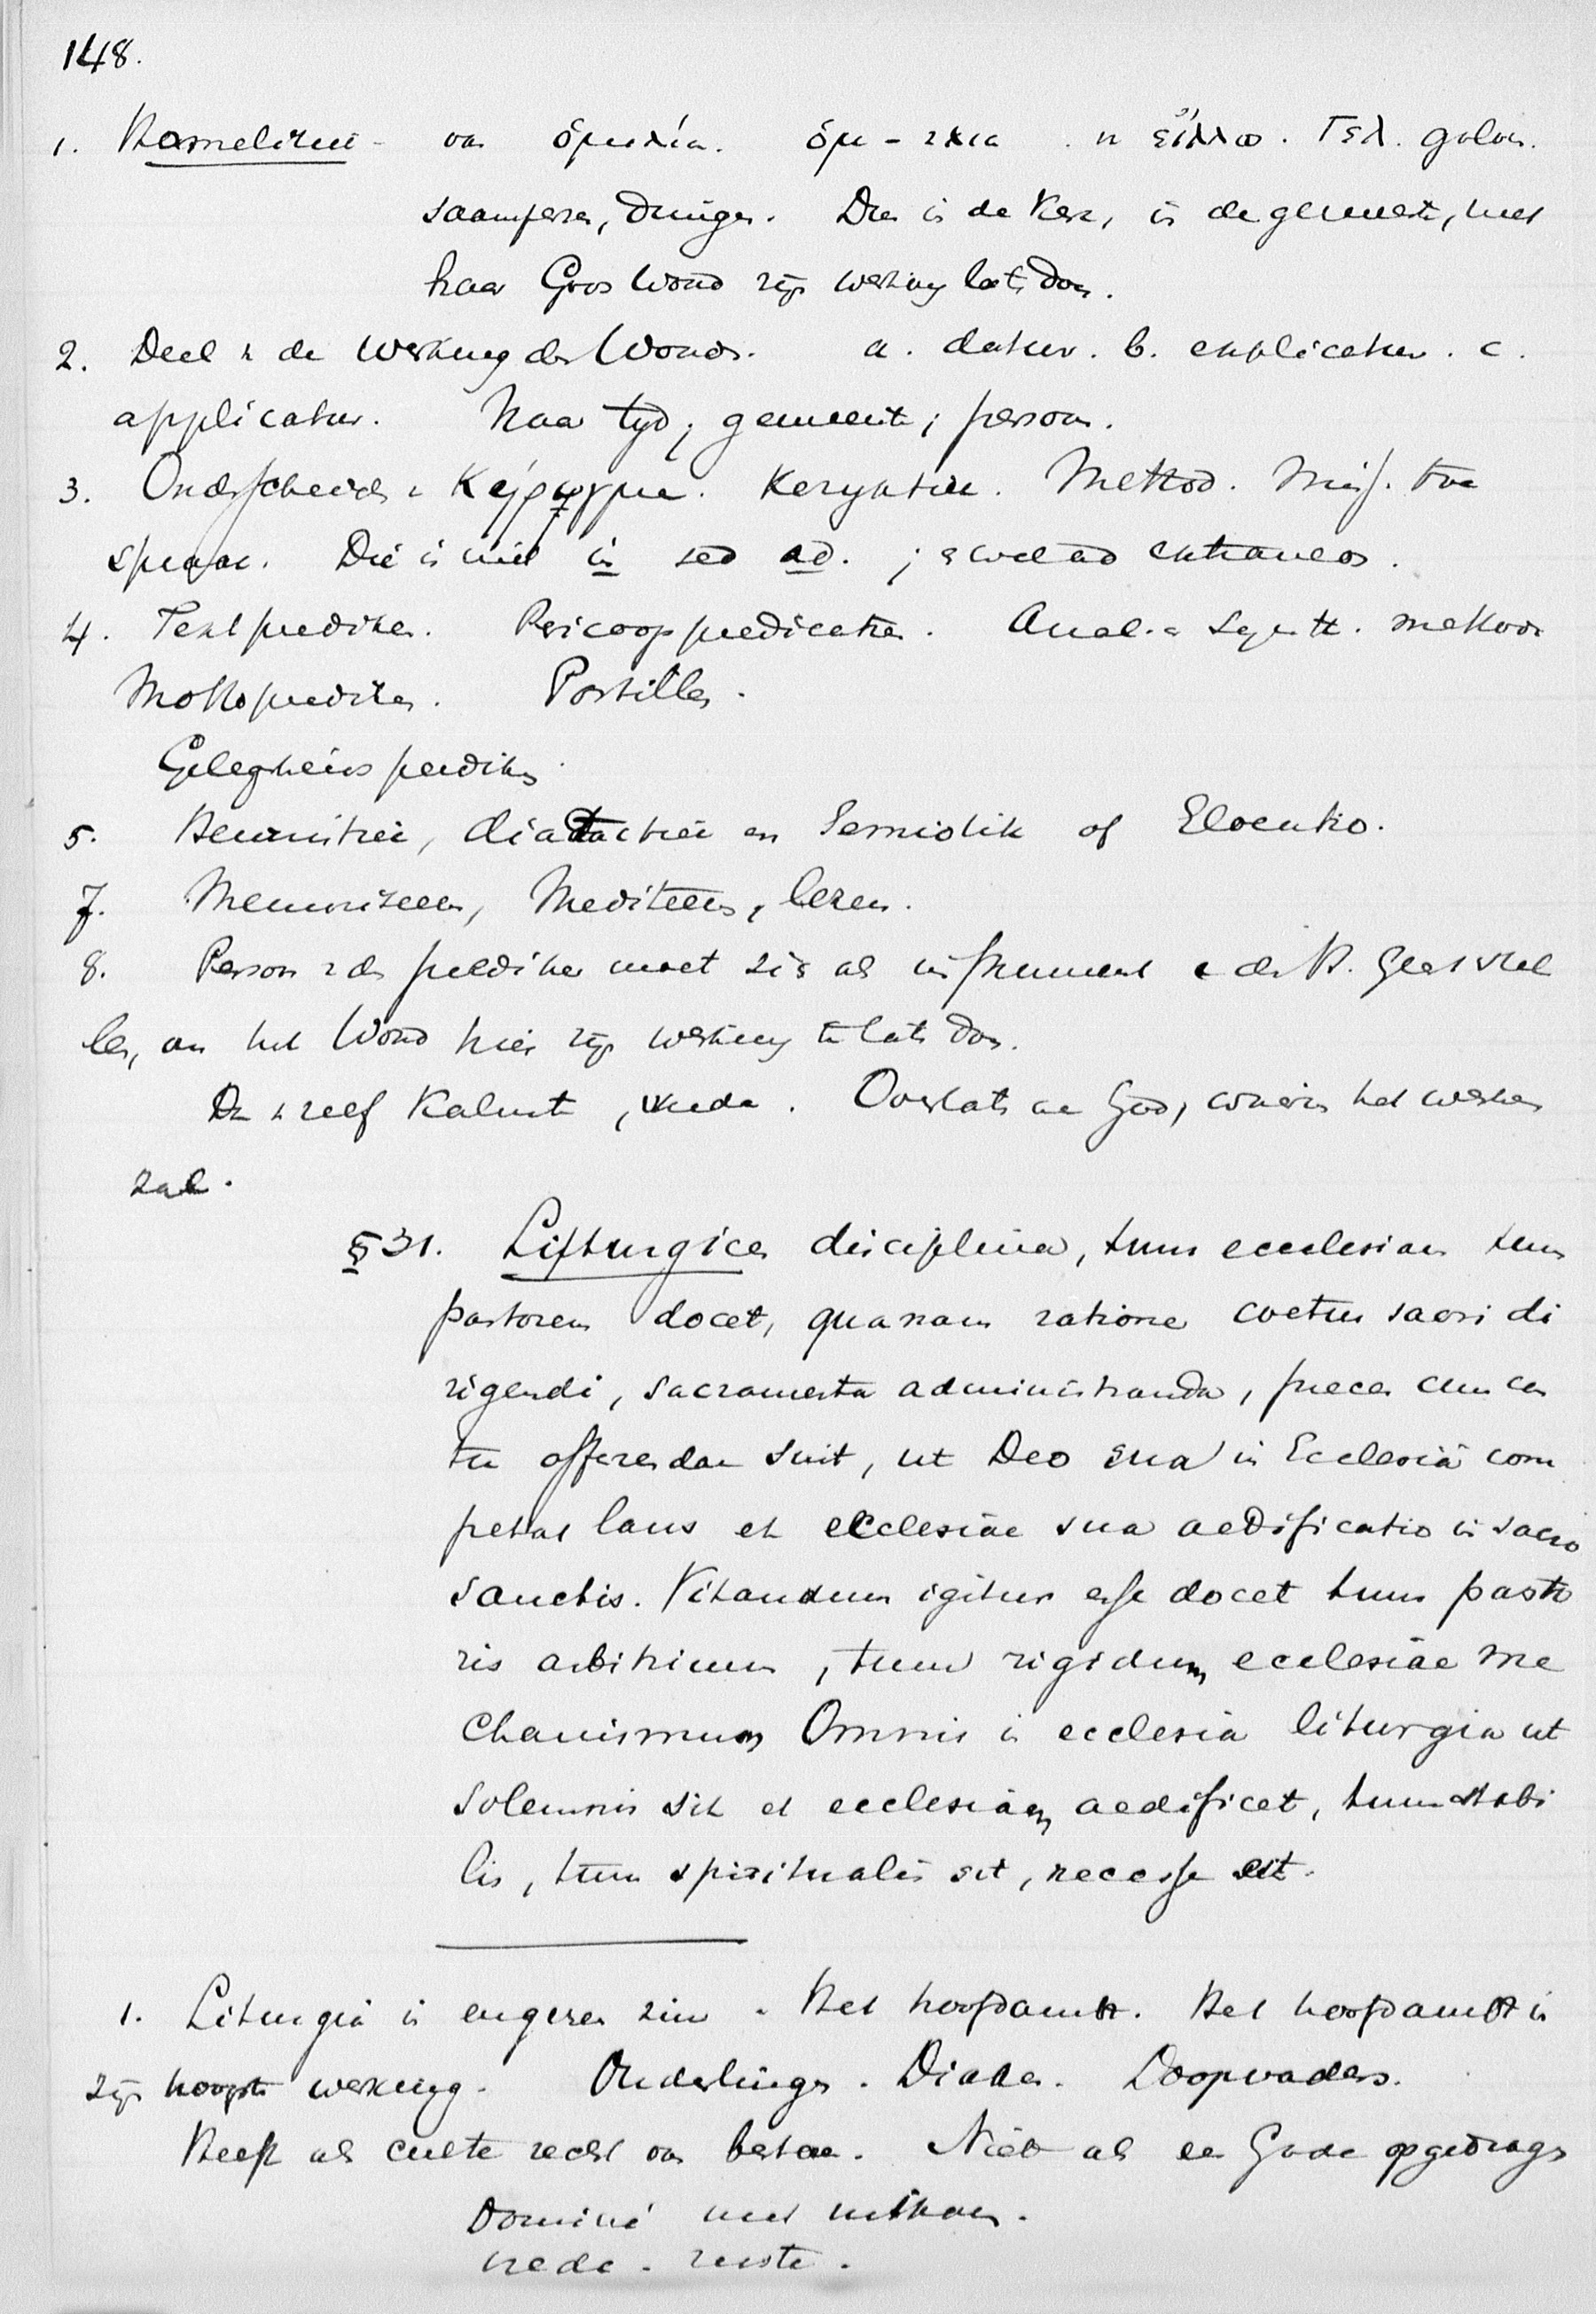 148.
1. Homeletiek - van ὁμιλία. ὁμ - ιλια . v εἴλλω. Γελ. golven.
saampersen, dringen. Dus is de Kerk, in de gemeente, met
haar Gods Woord zijn werking laten doen.
2. Deel v de werking des Woords. a. datur. b. explicatur. c.
applicatur. Naar tijd; gemeente; persoon.
3. Onderscheiden v Κήρυγμα. Keryktiek. Method. Miss. toe
spraak. Die is niet in sed ad. ; wel ad extraneos.
4. Tekstprediken. Pericoop predicatien. Anal. en Synth. methode
Mottoprediken. Postillen.
Gelegenheids prediken
5. Heuristiek, diatactiek en Semiotik of Elocutio.
7. Memoriseeren, Mediteeren, lezen.
8. Persoon v de prediker moet zich als instrument v den H. Geest stel
len, om het Woord hier zijn werking te laten doen.
De zelf Kalmte, vrede. Overlaten aan God, waarin het werken
zal.
§31. Liturgices disciplina, tum ecclesiam tum
pastorem docet, quanam ratione coetus sacri di
rigendi, sacramenta administranda, preces cum coe
tu offerendae sint, ut Deo sua in Ecclesiâ com
petat laus et ecclesiae sua aedificatio in sacro
sanctis. Vitandum igitur esse docet tum pasto
ris arbitrium, tum rigidum ecclesiae me
chanismum Omnis in ecclesia liturgia ut
solemnis sit et ecclesiam aedificet, tum stabi
lis, tum spiritualis sit, necesse est.
1. Liturgia in engeren zin. Het hoofdambt. Het hoofdambt in
zijn hoogste werking. Ouderlingen. Diaken. Doopvaders.
Heeft als culte recht van bestaan. Niet als een Gode opgedragen
Domini met
vrede. ruste.